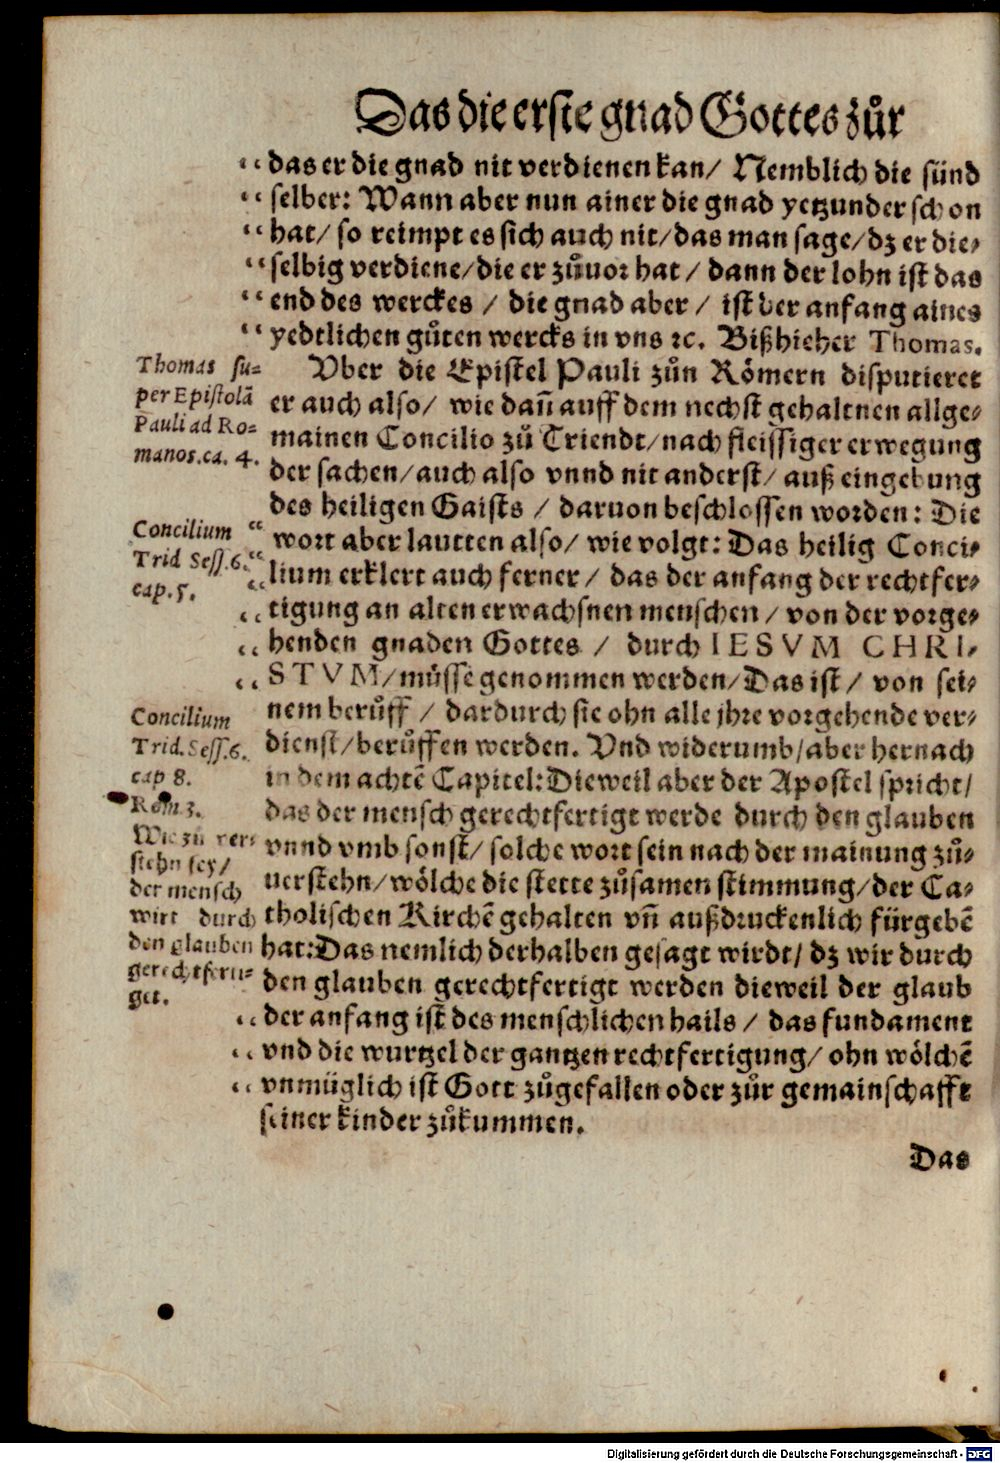 Das die erste gnad Gottes zůr
“ das er die gnad nit verdienen kan/ Nemblich die sünd
“ selber: Wann aber nun ainer die gnad yetzunder schon
“ hat/ so reimpt es sich auch nit/ das man sage/ dz er die-
“ selbig verdiene/ die er zůuor hat/ dann der lohn ist das
“ end des werckes / die gnad aber/ ist der anfang aines
“ yedtlichen gůten wercks in vns ꝛc. Bißhieher Thomas.
Thomas su-
per Epistolā
Pauli ad Ro-
manos. ca. 4.
Vber die Epistel Pauli zůn Römern disputieret
er auch also/ wie dañ auff dem nechst gehaltnen allge-
mainen Concilio zů Triendt/ nach fleissiger erwegung
der sachen/ auch also vnnd nit anderst/ auß eingebung
des heiligen Gaists / daruon beschlossen worden: Die
Concilium
Trid Sess. 6.
cap. 5.
“ wort aber lautten also/ wie volgt: Das heilig Conci-
“ lium erklert auch ferner/ das der anfang der rechtfer-
“ tigung an alten erwachsnen menschen/ von der vorge-
“ henden gnaden Gottes / durch IESVM CHRI-
“ STVM/ müsse genommen werden/ Das ist/ von sei-
nem berůff / dardurch sie ohn alle jhre vorgehende ver-
dienst/ berůffen werden. Vnd widerumb/ aber hernach
Concilium
Trid. Sess. 6.
cap 8.
Rom 3.
Wie zu ver-
stehn sey/
der mensch
wirt durch
den glauben
gerechtferti-
get.
in dem achtē Capitel: Dieweil aber der Apostel spricht/
das der mensch gerechtfertigt werde durch den glauben
vnnd vmb sonst/ solche wort sein nach der mainung zů-
uerstehn/ wölche die stette zůsamen stimmung/ der Ca-
tholischen Kirchē gehalten vñ außdruckenlich fürgebē
hat: Das nemlich derhalben gesagt wirdt/ dz wir durch
den glauben gerechtfertigt werden dieweil der glaub
“ der anfang ist des menschlichen hails / das fundament
“ vnd die wurtzel der gantzen rechtfertigung/ ohn wölchē
“ vnmüglich ist Gott zůgefallen oder zůr gemainschafft
seiner kinder zůkummen.
Das
Digitalisierung gefördert durch die Deutsche Forschungsgemeinschaft - DFG